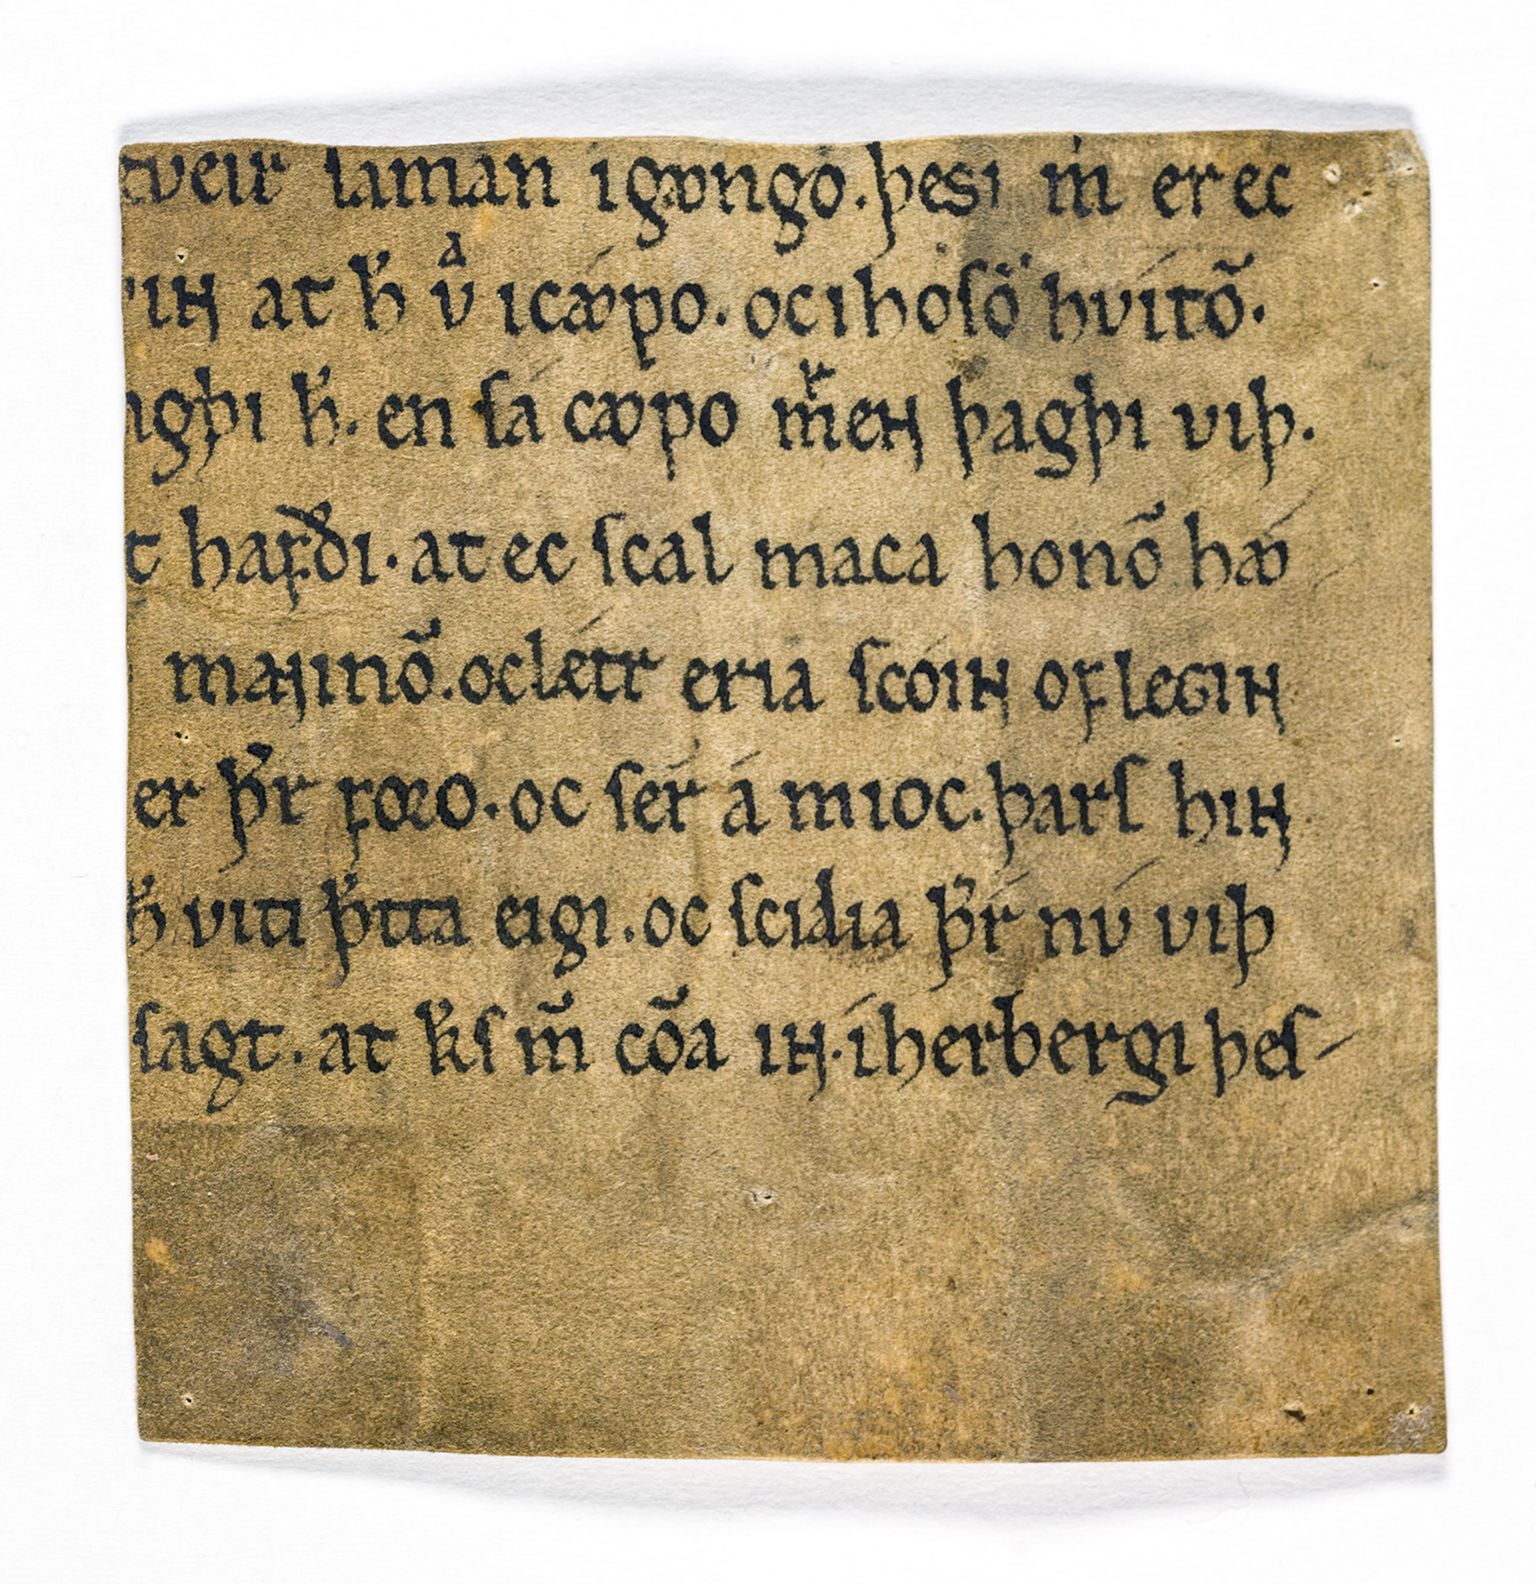 tveir saman i gꜹngo. þesi m̅ er ec
ıɴ at h̅ vͣ i cǽpo. oc i hoſō hvítō.
gþi h̅. en sá cꜹpo mͬeɴ þagþi viþ.
t hafði. at ec ſcal maca honō hꜹ́
maɴinō. oc lǽtr er ia ſcóiɴ of legiɴ
er þ̅r foꝛo. oc ſér á mioc. þarſ hiɴ
h̅ viti þ̅tta eigi. oc ſcilia þ̅r nú viþ
ſagt. at k̅s m̅ cōa iɴ. i herbergi þeſ-